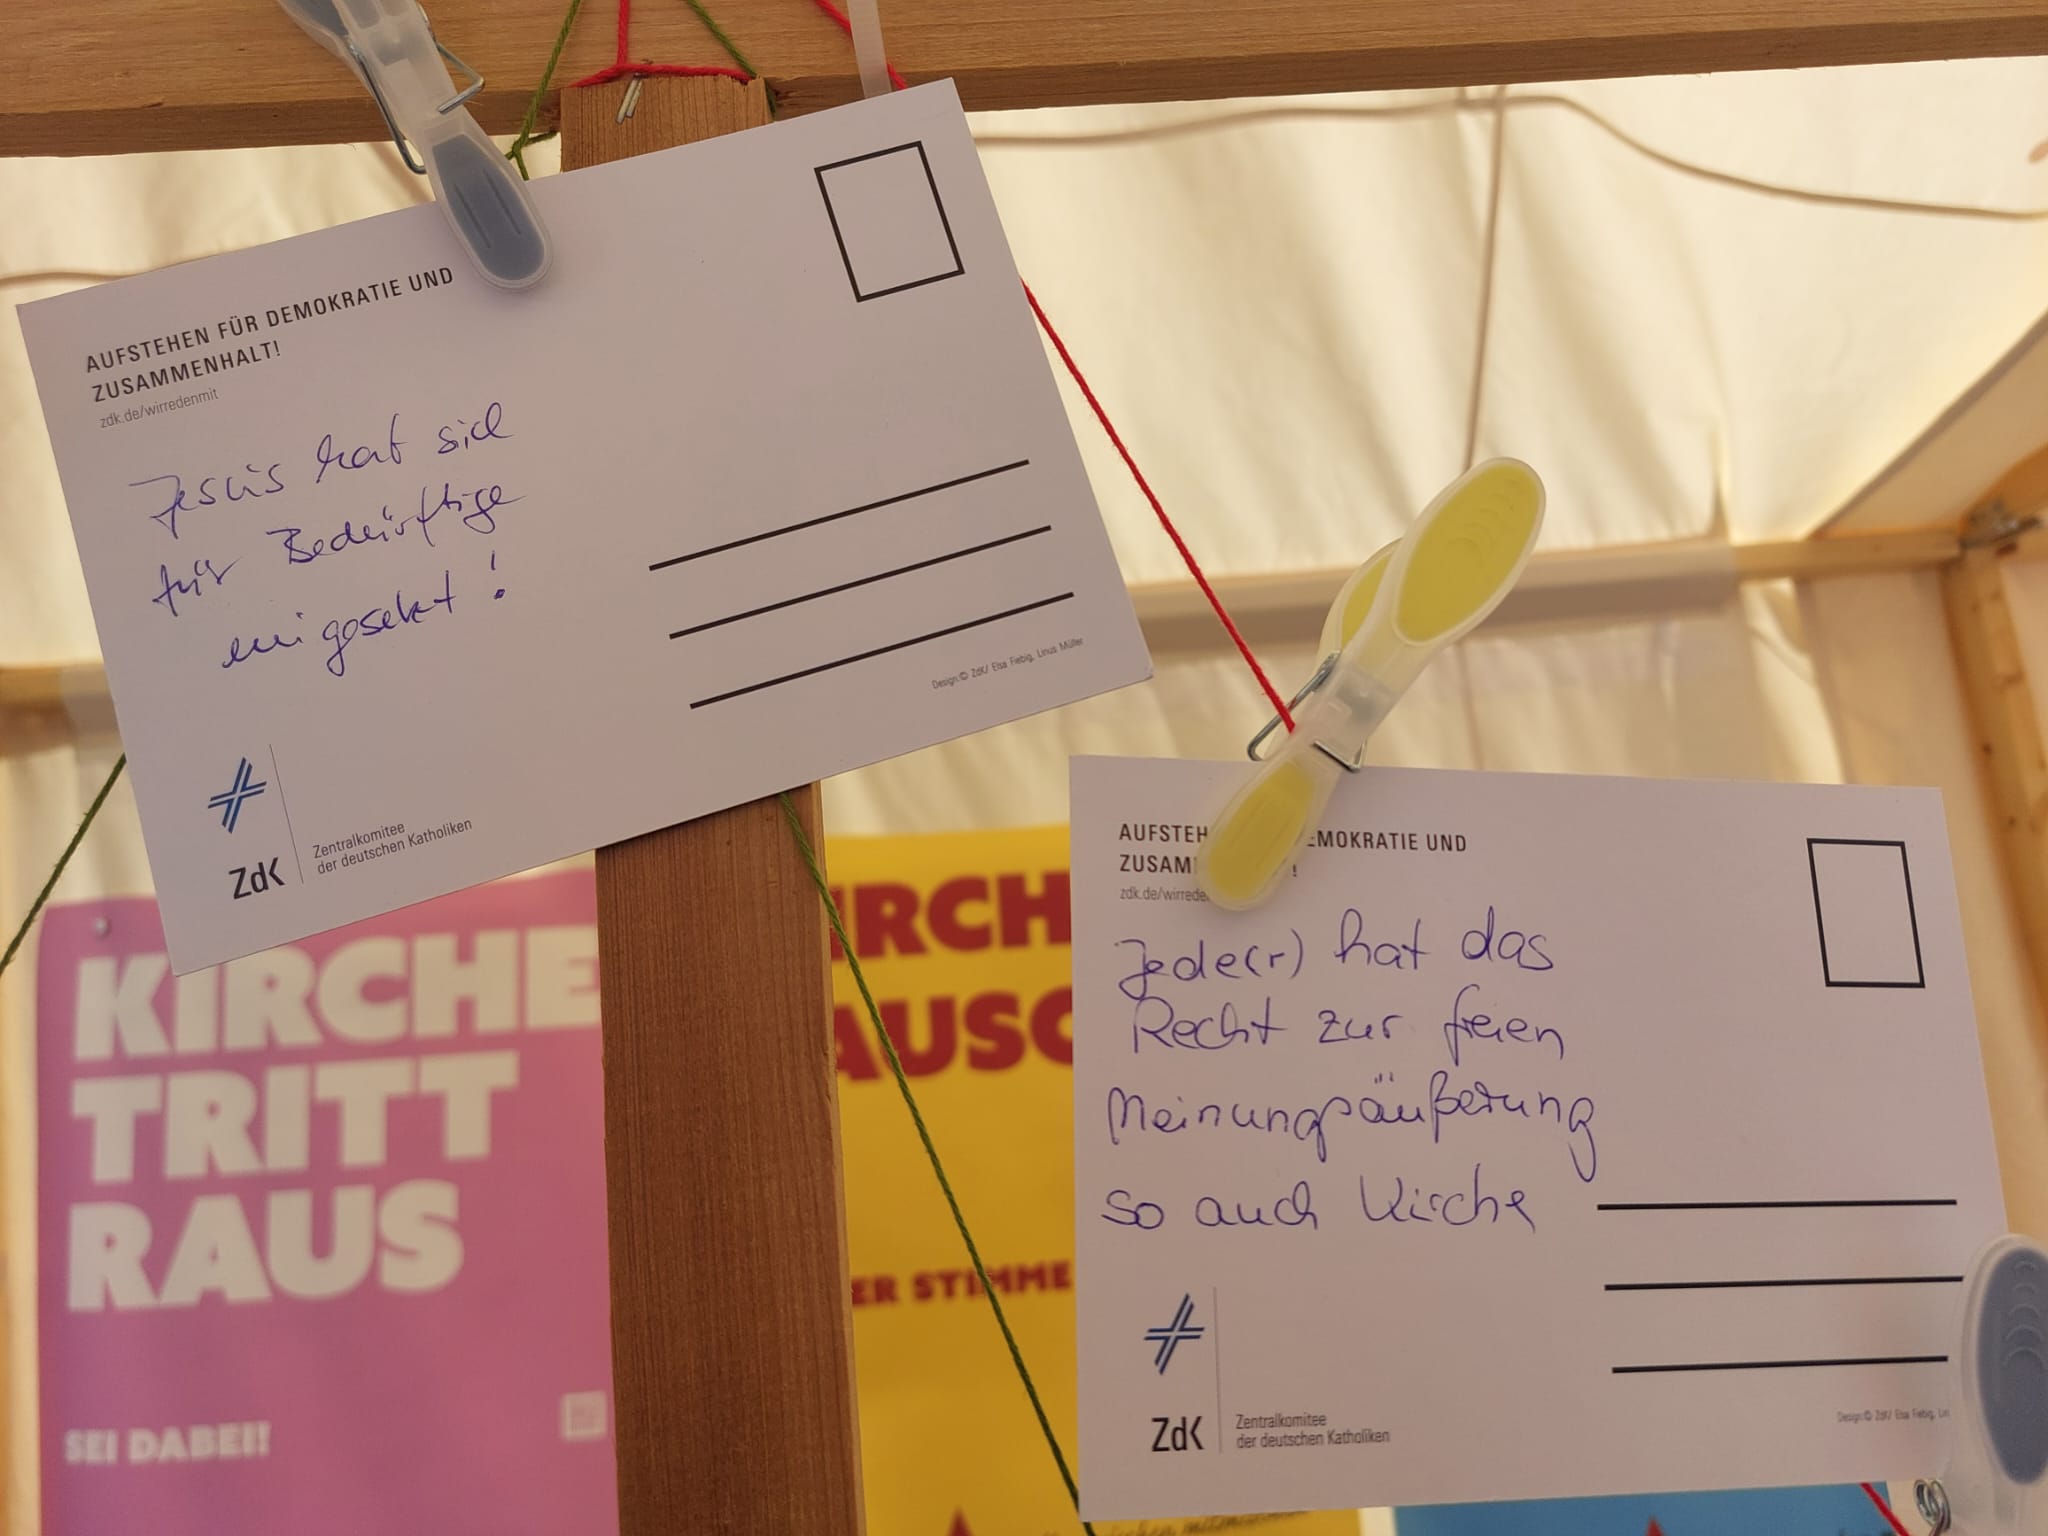 AUFSTEHEN FÜR DEMOKRATIE UND
ZUSAMMENHALT!
zdk.de/wirredenmit
Jesus hat sich
für Bedürftige
eingesetzt!
Design:© ZdK/ Elsa Fiebig, Linus Müller
ZdK
Zentralkomitee
der deutschen Katholiken
AUFSTEH EMOKRATIE UND
ZUSAM !
zdk.de/wirrede
Jede(r) hat das
Recht zur freien
Meinungsäußerung
so auch Kirche
ZdK
Zentralkomitee
der deutschen Katholiken
Design:© ZdK/ Elsa Fiebig, Lin
KIRCHE
TRITT
RAUS
SEI DABEI!
IRCH
AUSC
ER STIMME